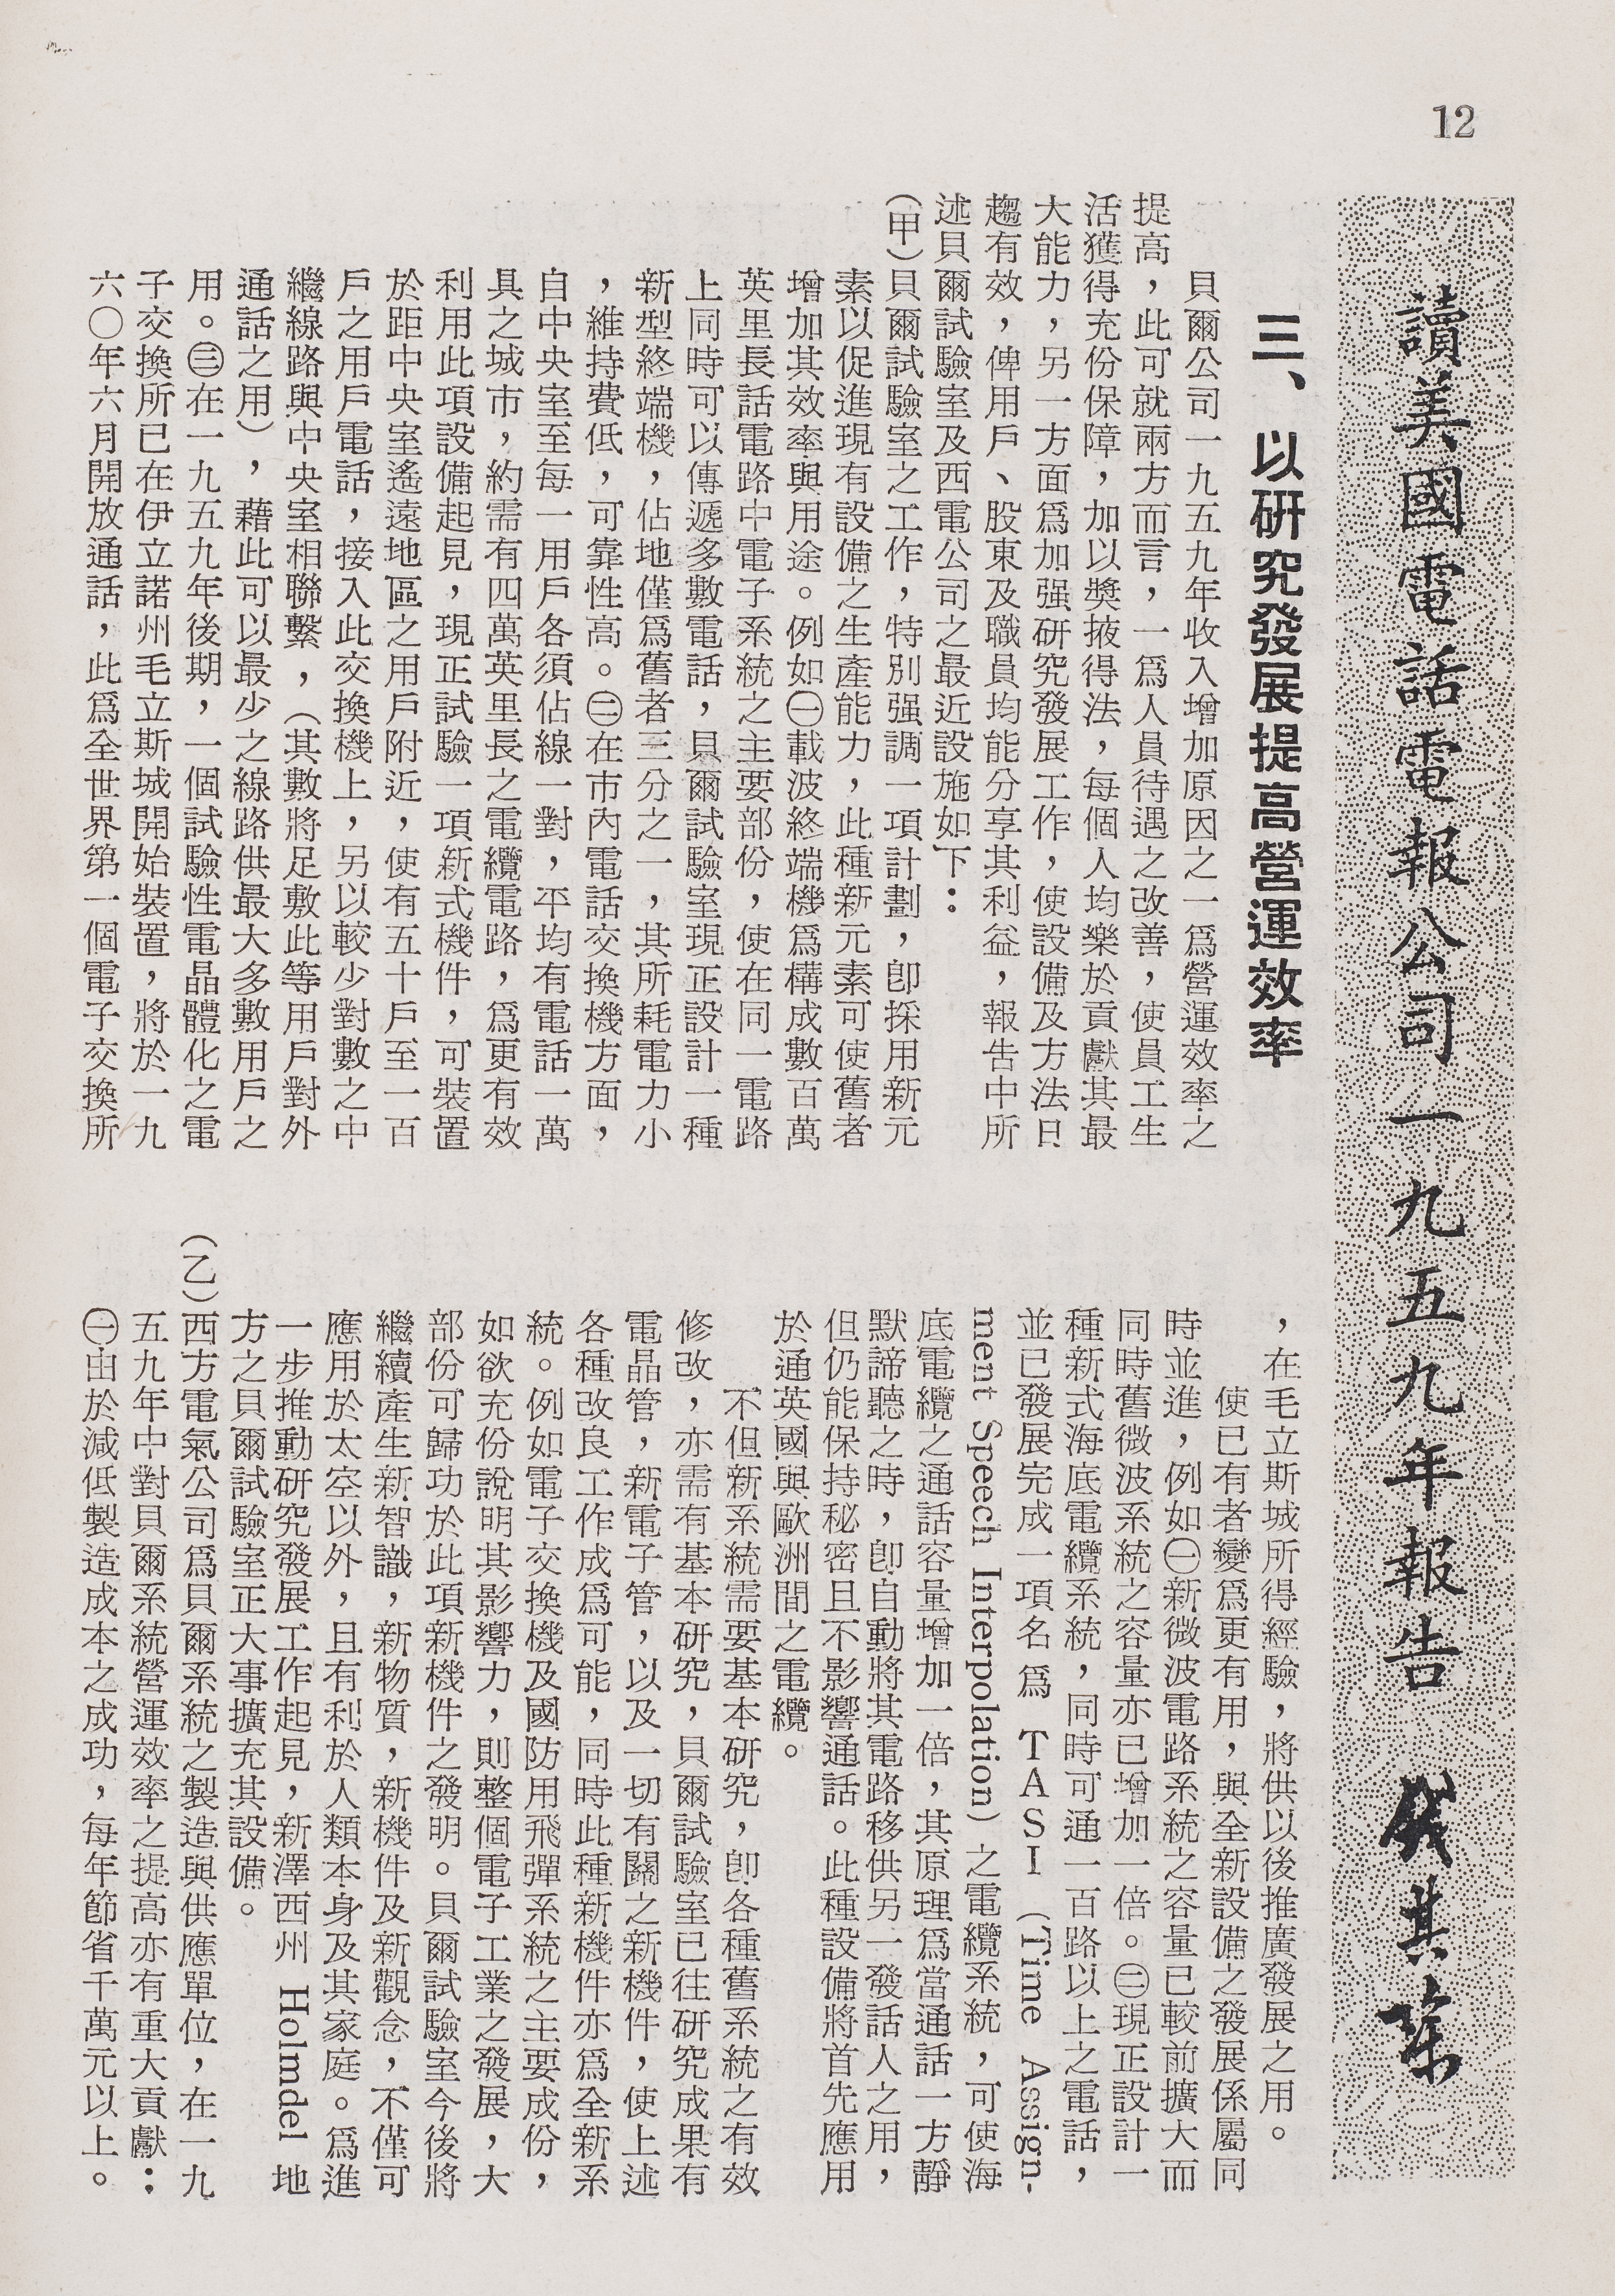 12
讀美國電話電報公司一九五九年報告 錢其琛
三、以研究發展提高營運效率
貝爾公司一九五九年收入增加原因之一爲營運效率之
提高，此可就兩方而言，一爲人員待遇之改善，使員工生
活獲得充份保障，加以獎掖得法，每個人均樂於貢獻其最
大能力，另一方面爲加强研究發展工作，使設備及方法日
趨有效，俾用戶、股東及職員均能分享其利益，報告中所
述貝爾試驗室及西電公司之最近設施如下：
（甲）貝爾試驗室之工作，特別强調一項計劃，卽採用新元
素以促進現有設備之生產能力，此種新元素可使舊者
增加其效率與用途。例如㊀載波終端機爲構成數百萬
英里長話電路中電子系統之主要部份，使在同一電路
上同時可以傳遞多數電話，貝爾試驗室現正設計一種
新型終端機，佔地僅爲舊者三分之一，其所耗電力小
，維持費低，可靠性高。㊁在市內電話交換機方面，
自中央室至每一用戶各須佔線一對，平均有電話一萬
具之城市，約需有四萬英里長之電纜電路，爲更有效
利用此項設備起見，現正試驗一項新式機件，可裝置
於距中央室遙遠地區之用戶附近，使有五十戶至一百
戶之用戶電話，接入此交換機上，另以較少對數之中
繼線路與中央室相聯繫，（其數將足敷此等用戶對外
通話之用），藉此可以最少之線路供最大多數用戶之
用。㊂在一九五九年後期，一個試驗性電晶體化之電
子交換所已在伊立諾州毛立斯城開始裝置，將於一九
六〇年六月開放通話，此爲全世界第一個電子交換所
，在毛立斯城所得經驗，將供以後推廣發展之用。
使已有者變爲更有用，與全新設備之發展係屬同
時並進，例如㊀新微波電路系統之容量已較前擴大而
同時舊微波系統之容量亦已增加一倍。㊁現正設計一
種新式海底電纜系統，同時可通一百路以上之電話，
並已發展完成一項名爲 TASI （Time Assign-
ment Speech Interpolation）之電纜系統，可使海
底電纜之通話容量增加一倍，其原理爲當通話一方靜
默諦聽之時，卽自動將其電路移供另一發話人之用，
但仍能保持秘密且不影響通話。此種設備將首先應用
於通英國與歐洲間之電纜。
不但新系統需要基本研究，卽各種舊系統之有效
修改，亦需有基本研究，貝爾試驗室已往研究成果有
電晶管，新電子管，以及一切有關之新機件，使上述
各種改良工作成爲可能，同時此種新機件亦爲全新系
統。例如電子交換機及國防用飛彈系統之主要成份，
如欲充份說明其影響力，則整個電子工業之發展，大
部份可歸功於此項新機件之發明。貝爾試驗室今後將
繼續產生新智識，新物質，新機件及新觀念，不僅可
應用於太空以外，且有利於人類本身及其家庭。爲進
一步推動研究發展工作起見，新澤西州 Holmdel 地
方之貝爾試驗室正大事擴充其設備。
（乙）西方電氣公司爲貝爾系統之製造與供應單位，在一九
五九年中對貝爾系統營運效率之提高亦有重大貢獻：
㊀由於減低製造成本之成功，每年節省千萬元以上。